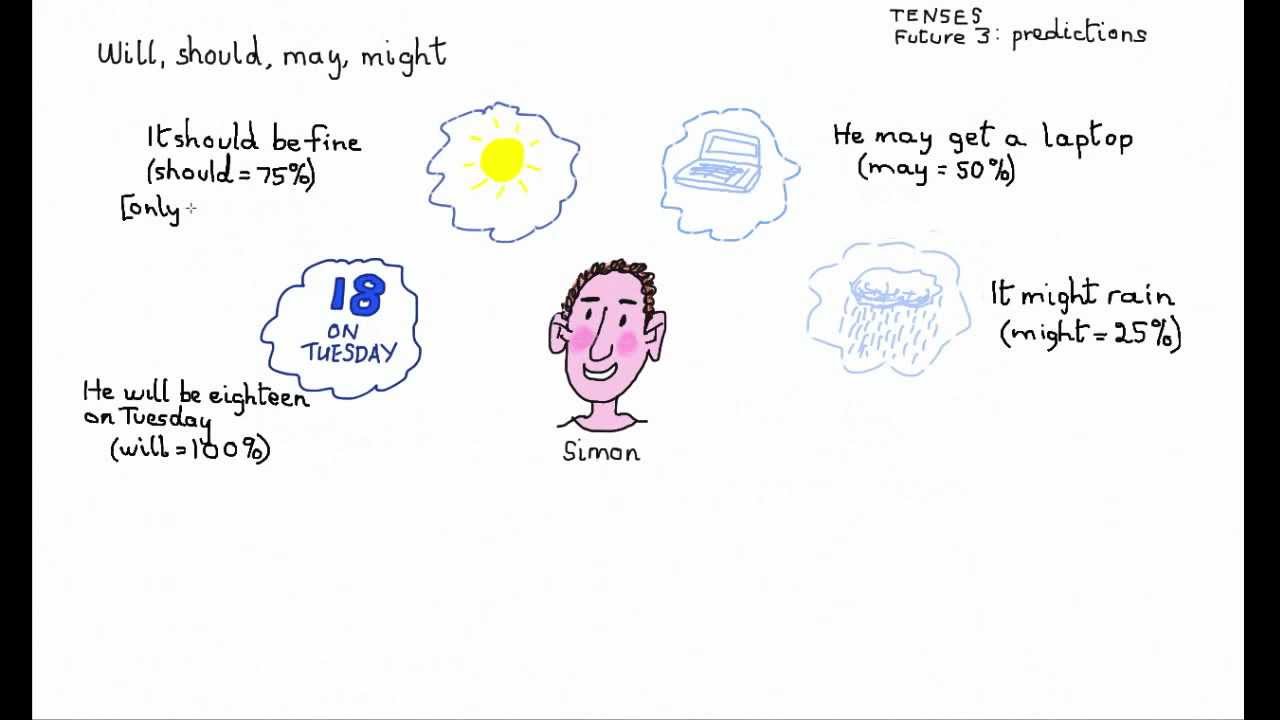 TENSES
Future 3: predictions
Will, should, may, might
It should be fine
(should = 75%)
[only
He may get a laptop
(may = 50%)
18
ON
TUESDAY
It might rain
(might = 25%)
He will be eighteen
on Tuesday
(will = 100%)
Simon